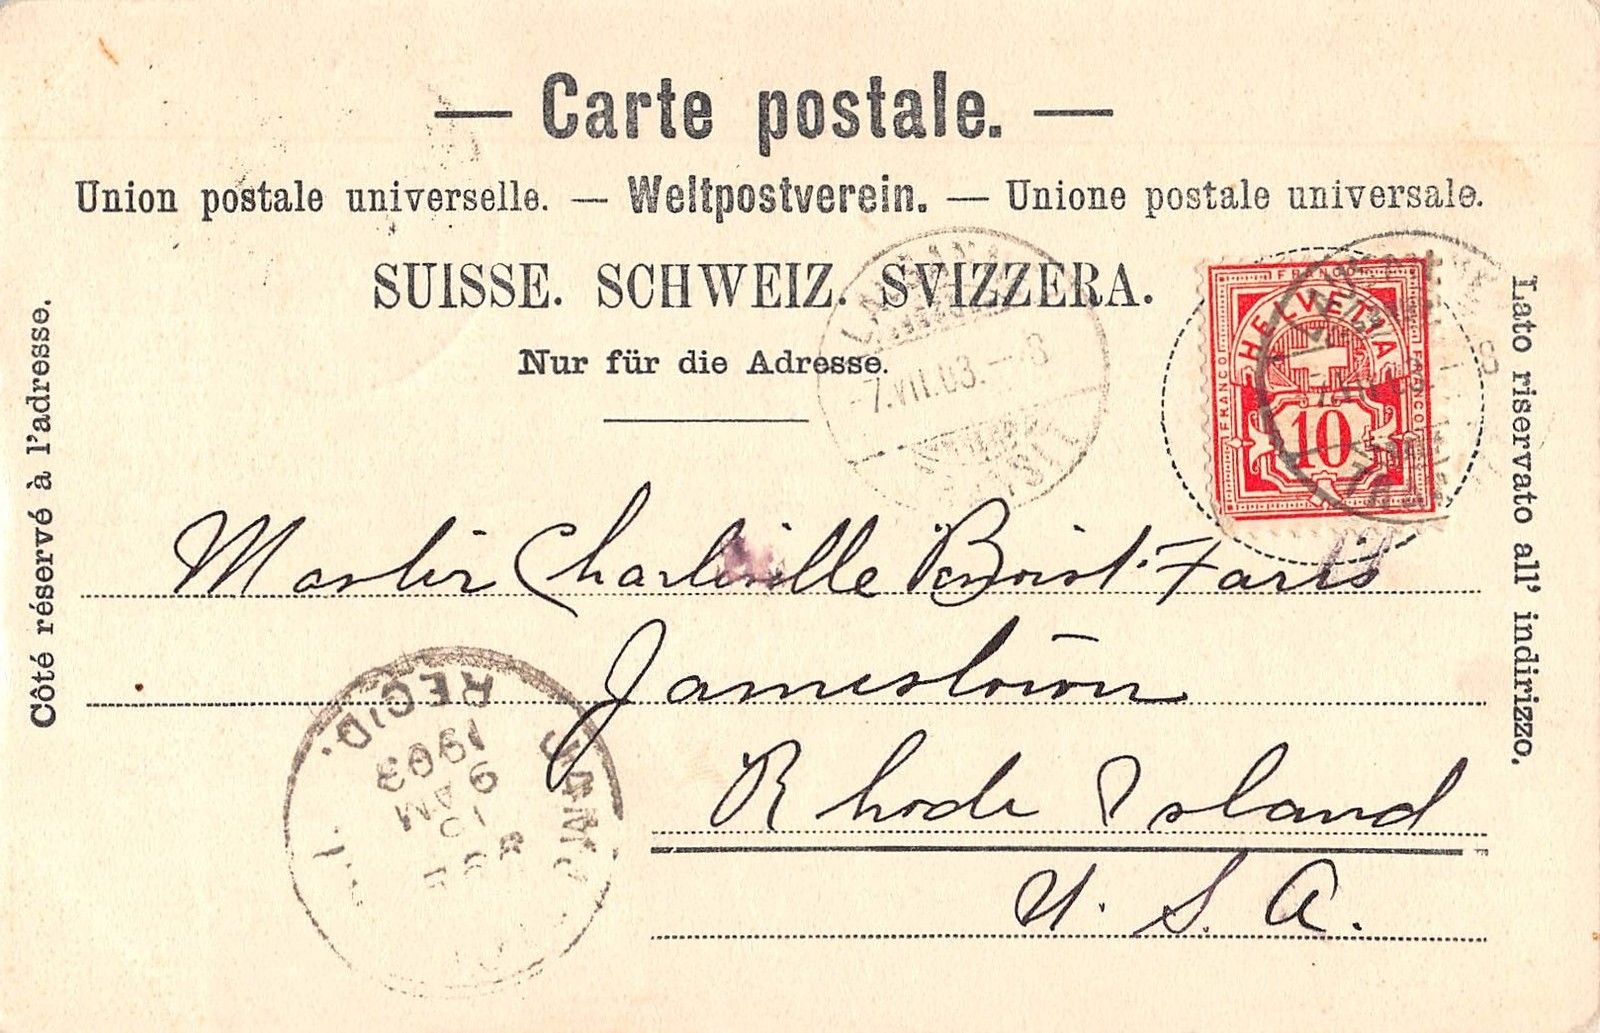 — Carte postale. —
Union postale universelle. — Weltpostverein. — Unione postale universale.
SUISSE. SCHWEIZ. SVIZZERA.
Nur für die Adresse.
Côté réservé à l'adresse.
Lato riservato all' indirizzo.
FRANCO
HELVETIA
FRANCO
FRANCO
10
-7.VII.03.--8
Master Charleville Benoist-Faris
Jamestown
Rhode Island
U. S. A.
REC'D.
1903
9
AM